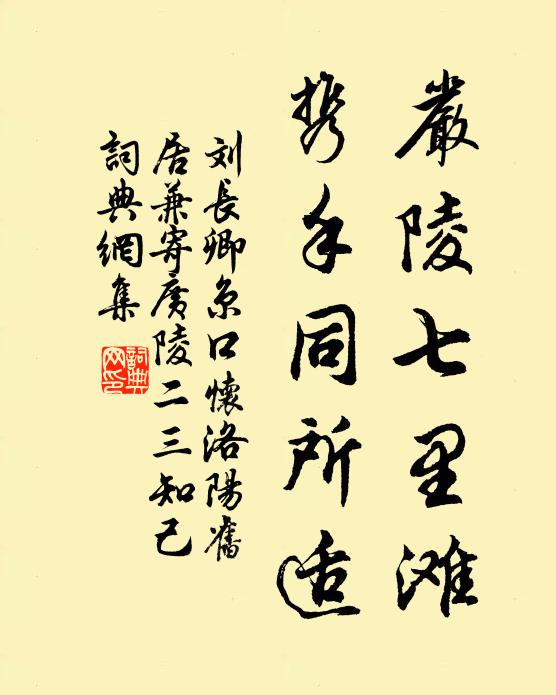 嚴陵七里滩
携手同所适
刘長卿京口懷洛陽舊
居兼寄廣陵二三知己
詞典網集
詞典
网印